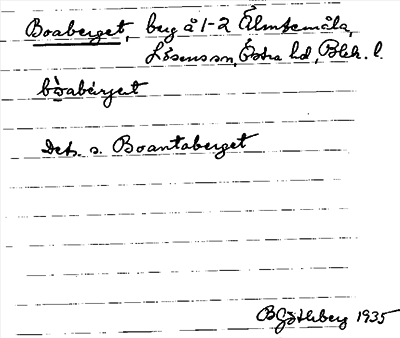 Boaberget, berg å 1-2 Älmtemåla,
Lösens sn, Östra hd, Blek. l.
bòabérjet
Dets. s. Boantaberget
B Göthberg 1935